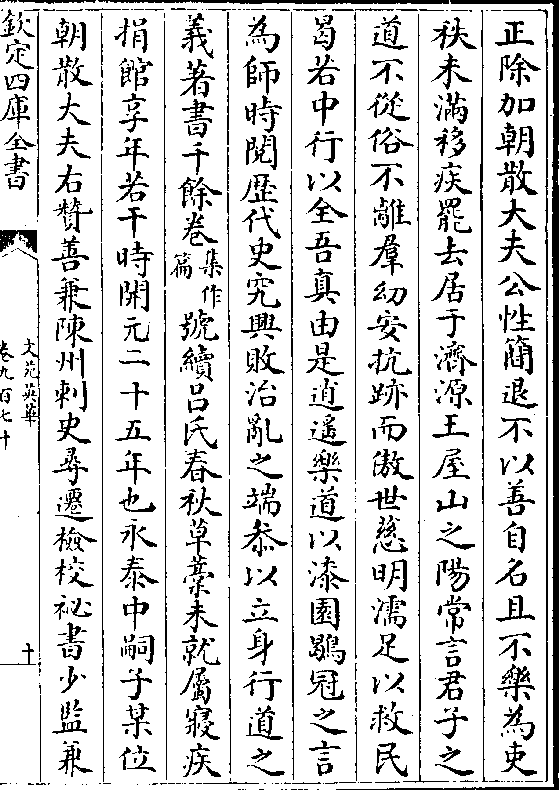 正除加朝散大夫公性簡退不以善自名且不樂為吏
秩未滿移疾罷去居于濟源王屋山之陽常言君子之
道不從俗不離羣幼安抗跡而傲世慈明濡足以救民
曷若中行以全吾真由是逍遥樂道以漆園鶡冠之言
為師時閱歴代史究興敗治亂之端叅以立身行道之
義著書千餘卷集作篇號續吕氏春秋草藁未就屬寢疾
捐館享年若干時開元二十五年也永泰中嗣子某位
朝散大夫右贊善兼陳州刺史尋遷檢校祕書少監兼
欽定四庫全書
文苑英華
卷九百七十
十